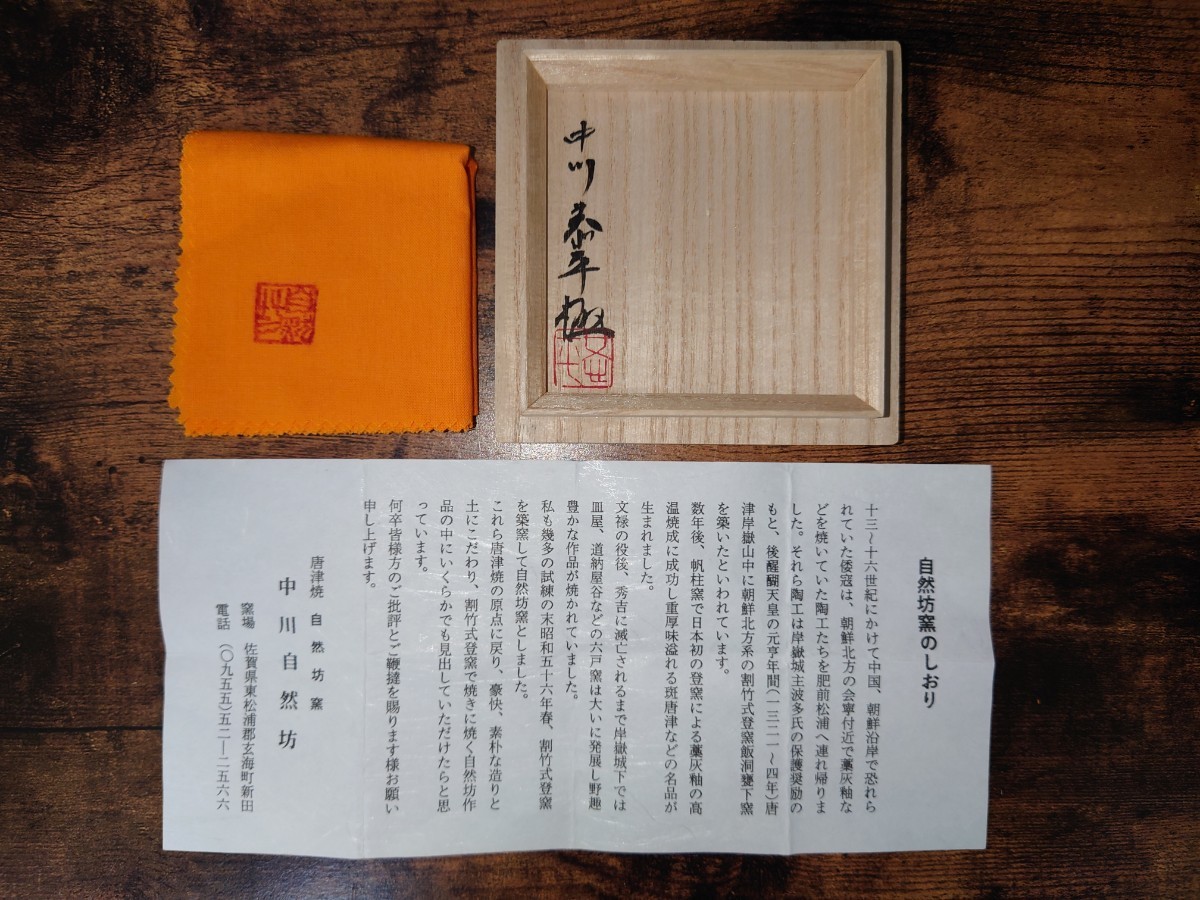 中川恭平極
自然坊窯のしおり
十三～十六世紀にかけて中国、朝鮮沿岸で恐れら
れていた倭寇は、朝鮮北方の会寧付近で藁灰釉な
どを焼いていた陶工たちを肥前松浦へ連れ帰りま
した。それら陶工は岸嶽城主波多氏の保護奨励の
もと、後醍醐天皇の元亨年間(一三二一～四年)唐
津岸嶽山中に朝鮮北方系の割竹式登窯飯洞甕下窯
を築いたといわれています。
数年後、帆柱窯で日本初の登窯による藁灰釉の高
温焼成に成功し重厚味溢れる斑唐津などの名品が
生まれました。
文禄の役後、秀吉に滅亡されるまで岸嶽城下では
皿屋、道納屋谷などの六戸窯は大いに発展し野趣
豊かな作品が焼かれていました。
私も幾多の試練の末昭和五十六年春、割竹式登窯
を築窯して自然坊窯としました。
これら唐津焼の原点に戻り、豪快、素朴な造りと
土にこだわり、割竹式登窯で焼きに焼く自然坊作
品の中にいくらかでも見出していただけたらと思
っています。
何卒皆様方のご批評とご鞭撻を賜ります様お願い
申し上げます。
唐津焼 自然坊窯
中川自然坊
窯場 佐賀県東松浦郡玄海町新田
電話 (〇九五五)五二―二五六六